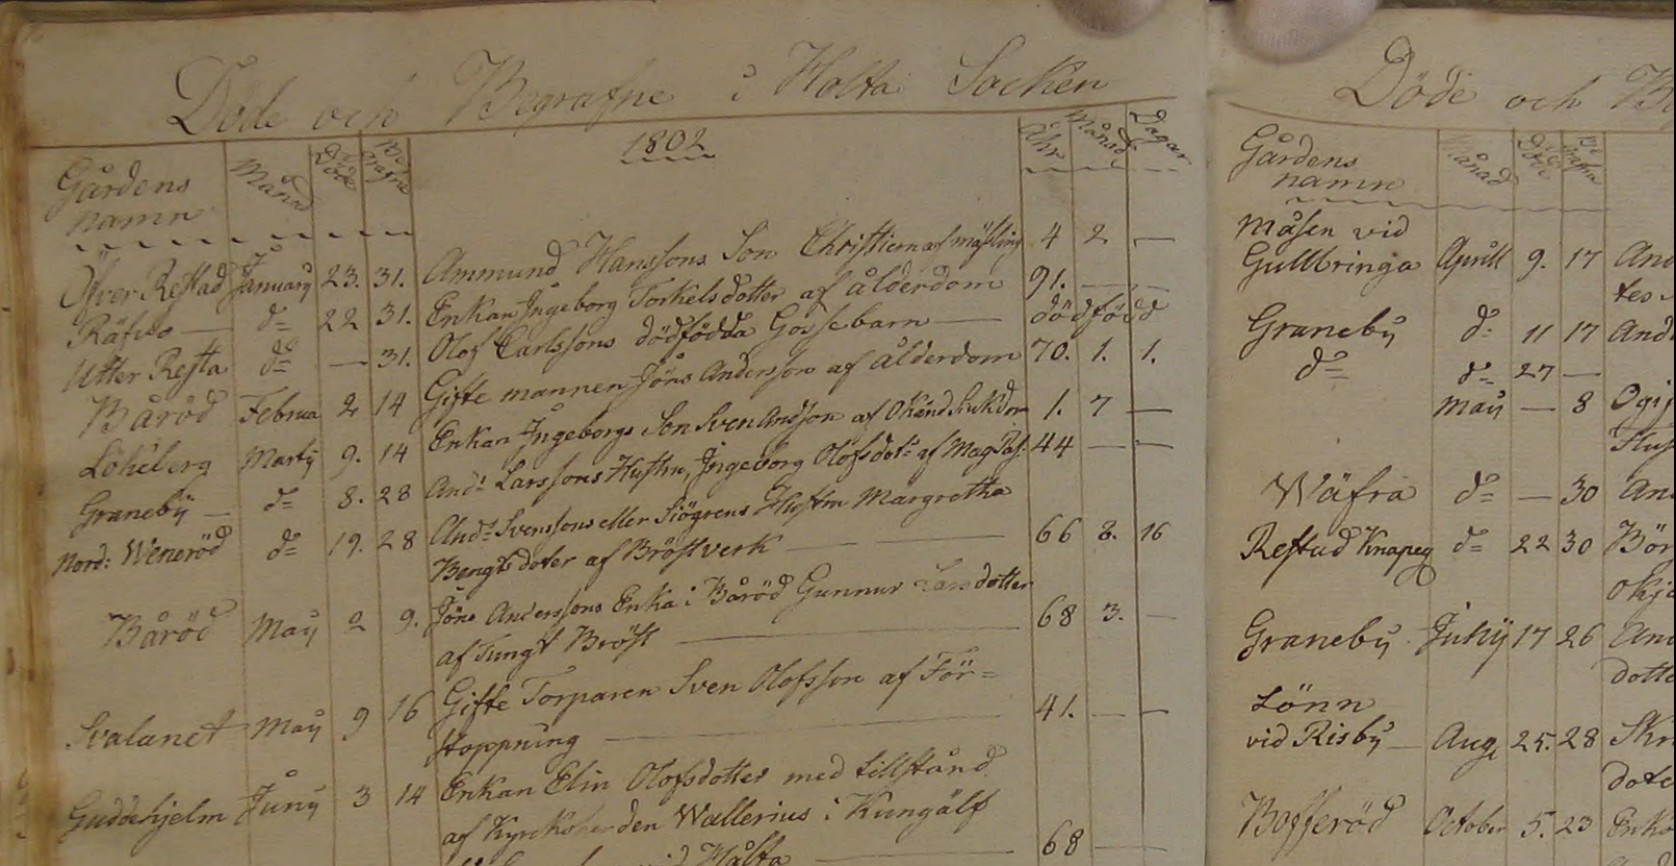 Döde och Begrafne i Holta Socken
1802
Gårdens namn Månad Döde Begrafne Åhr Månad Dagar
Öfver Restad January 23. 31. Ammund Hanssons Son Christiern af mässling 4 2 —
Räfwo — d= 22 31. Enkan Jngeborg Torkelsdotter af ålderdom 91. — —
Utter Resta d= — 31. Olof Carlssons dödfödda Gossebarn — dödfödd
Båröd Februa 2 14 Gifte mannen Jöns Andersson af ålderdom 70. 1. 1.
Löheberg Marty 9. 14 Enkan Jngeborgs Son Sven Andsson af Okänd Siukdom 1. 7 —
Graneby — d= 8. 28 And: Larssons Hustru, Jngeborg Olofsdot: af 44 — —
Nord: Weneröd d= 19. 28 And: Svenssons eller Siögrens Hustru Margretha
Bengtsdoter af Bröstverk — 66 8. 16
Båröd May 2 9. Jöns Anderssons Enka i Båröd Gunnur Larsdotter
af Tungt Bröst — 68 3. —
Svalanet May 9 16 Gifte Torparen Sven Olofsson af För=
stoppning — 41. — —
Guddehjelm Juny 3 14 Enkan Elin Olofsdotter med tillstånd
af Kyrckoherden Wallerius i Kungälf
Hålta — 68 —
Döde och
Gårdens namn Månad Döde Begrafne
Måsen vid
Gullbringa Aprill 9. 17
Graneby d: 11 17
d= d= 27 —
May — 8
Wäfra d= — 30
Restad Knapeg d= 22 30
Graneby July 17 26
dotte
Lönn
vid Risby — Aug 25. 28
dote
Bofferöd October 5. 23